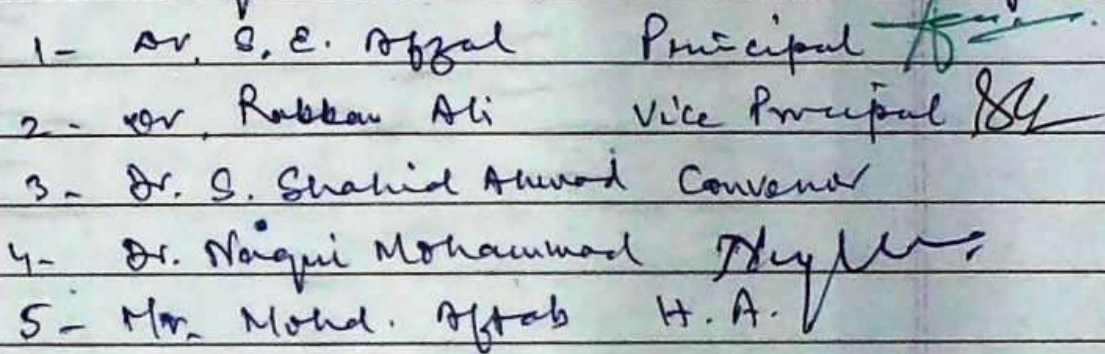 1- Dr. S. E. Afzal Principal
2- Dr. Rabban Ali Vice Principal
3- Dr. S. Shahid Ahmad Convenor
4- Dr. Naiqui Mohammad
5- Mr. Mohd. Aftab H. A.